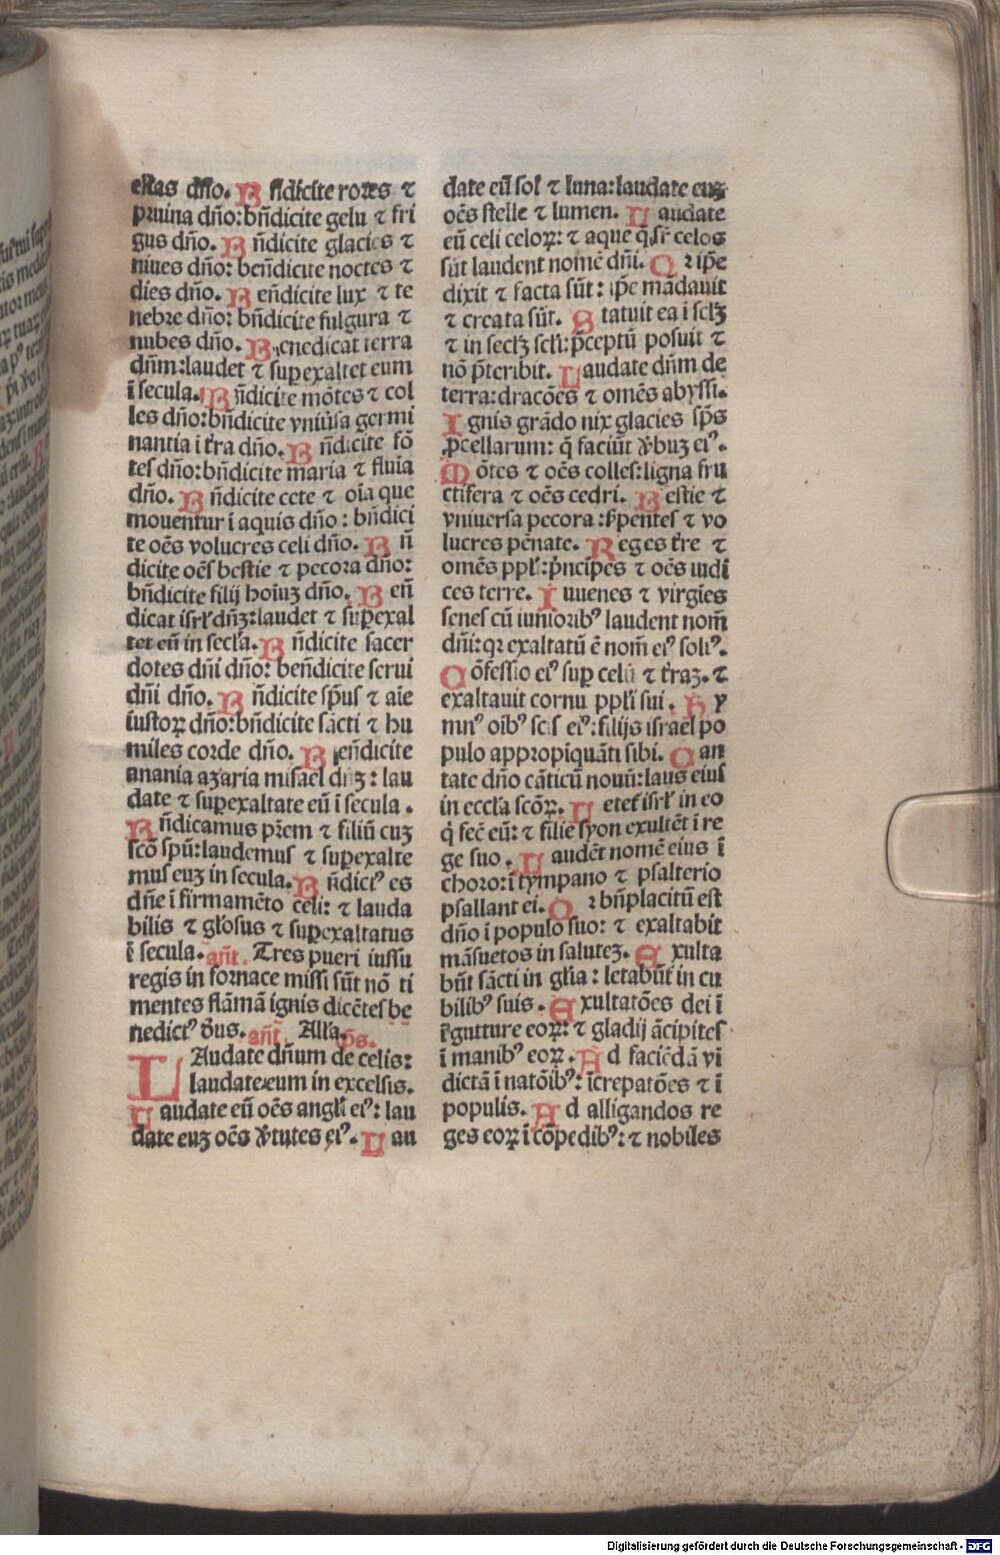 estas dño. B ñdicite rores ⁊
pruina dño: bñdicite gelu ⁊ fri
gus dño. B ñdicite glacies ⁊
niues dño: beñdicite noctes ⁊
dies dño. B eñdicite lux ⁊ te
nebre dño: bñdicite fulgura ⁊
nubes dño. B enedicat terra
dñm: laudet ⁊ supexaltet eum
ī secula. B ñdicite mōtes ⁊ col
les dño: bñdicite vniūsa germi
nantia i t̄ra dño. B ñdicite fō
tes dño: bñdicite maria ⁊ fluia
dño. B ñdicite cete ⁊ oīa que
mouentur ī aquis dño : bñdici
te oēs volucres celi dño. B ñ
dicite oēs bestie ⁊ pecora dño:
bñdicite filij hoīuꝫ dño. B eñ
dicat isrl̄ dñꝫ: laudet ⁊ supexal
tet eū in secl̄a. B ñdicite sacer
dotes dñi dño: beñdicite serui
dñi dño. B ñdicite sp̄us ⁊ aīe
iustoꝝ dño: bñdicite sācti ⁊ hu
miles corde dño. B eñdicite
anania aꝫaria misael dñꝫ : lau
date ⁊ supexaltate eū ī secula .
B ñdicamus pr̄em ⁊ filiū cuꝫ
scō spū: laudemus ⁊ supexalte
mus euꝫ in secula. B ñdictꝰ es
dñe ī firmamēto celi: ⁊ lauda
bilis ⁊ gl̄osus ⁊ supexaltatus
ī secula. añt. Tres pueri iussu
regis in fornace missi sūt nō ti
mentes flāmā ignis dicētes be
nedictꝰ d̄us. añt. All̄a. p̄s.
L Audate dñum de celis:
laudate eum in excelsis.
L audate eū oēs angl̄i eiꝰ: lau
date euꝫ oēs v̄tutes eiꝰ. L au
date eū sol ⁊ luna: laudate euꝫ
oēs stelle ⁊ lumen. L audate
eū celi celoꝝ: ⁊ aque q̄ sr̄ celos
sūt laudent nomē dñi. Q ꝛ ip̄e
dixit ⁊ facta sūt : ip̄e mādauit
⁊ creata sūt. S tatuit ea ī scl̄ꝫ
⁊ in seclꝫ scl̄i: p̄ceptū posuit ⁊
nō p̄teribit. L audate dñm de
terra: dracōes ⁊ omēs abyssi.
I gnis grādo nix glacies sp̄s
ꝓcellarum: q̄ faciūt v̄buꝫ eiꝰ.
M ōtes ⁊ oēs colles: ligna fru
ctifera ⁊ oēs cedri. B estie ⁊
vniuersa pecora : s̄pentes ⁊ vo
lucres pēnate. R eges t̄re ⁊
omēs ppl̄i: p̄ncipes ⁊ oēs iudi
ces terre. I uuenes ⁊ virgīes
senes cū iunioribꝰ laudent nom̄
dñi: qꝛ exaltatū ē nom̄ eiꝰ soliꝰ.
C ōfessio eiꝰ sup celū ⁊ t̄raꝫ. ⁊
exaltauit cornu ppl̄i sui . H y
mnꝰ oībꝰ scīs eiꝰ: filijs israel po
pulo appropīquāti sibi. C an
tate dño cāticū nouū: laus eius
in eccl̄a scōꝝ. L etet̄ isrl̄ in eo
q̄ fec̄ eū: ⁊ filie syon exultēt ī re
ge suo . L audēt nomē eius ī
choro: ī tympano ⁊ psalterio
psallant ei. Q ꝛ bñplacitū est
dño ī populo suo: ⁊ exaltabit
māsuetos in saluteꝫ. E xulta
būt sācti in gl̄ia : letabūt in cu
bilibꝰ suis . E xultatōes dei ī
gutture eoꝝ: ⁊ gladij ācipites
ī manibꝰ eoꝝ . A d faciēdā vi
dictā ī natōibꝰ: īcrepatōes ⁊ ī
populis. A d alligandos re
ges eoꝝ ī cōpedibꝰ: ⁊ nobiles
Digitalisierung gefördert durch die Deutsche Forschungsgemeinschaft - DFG